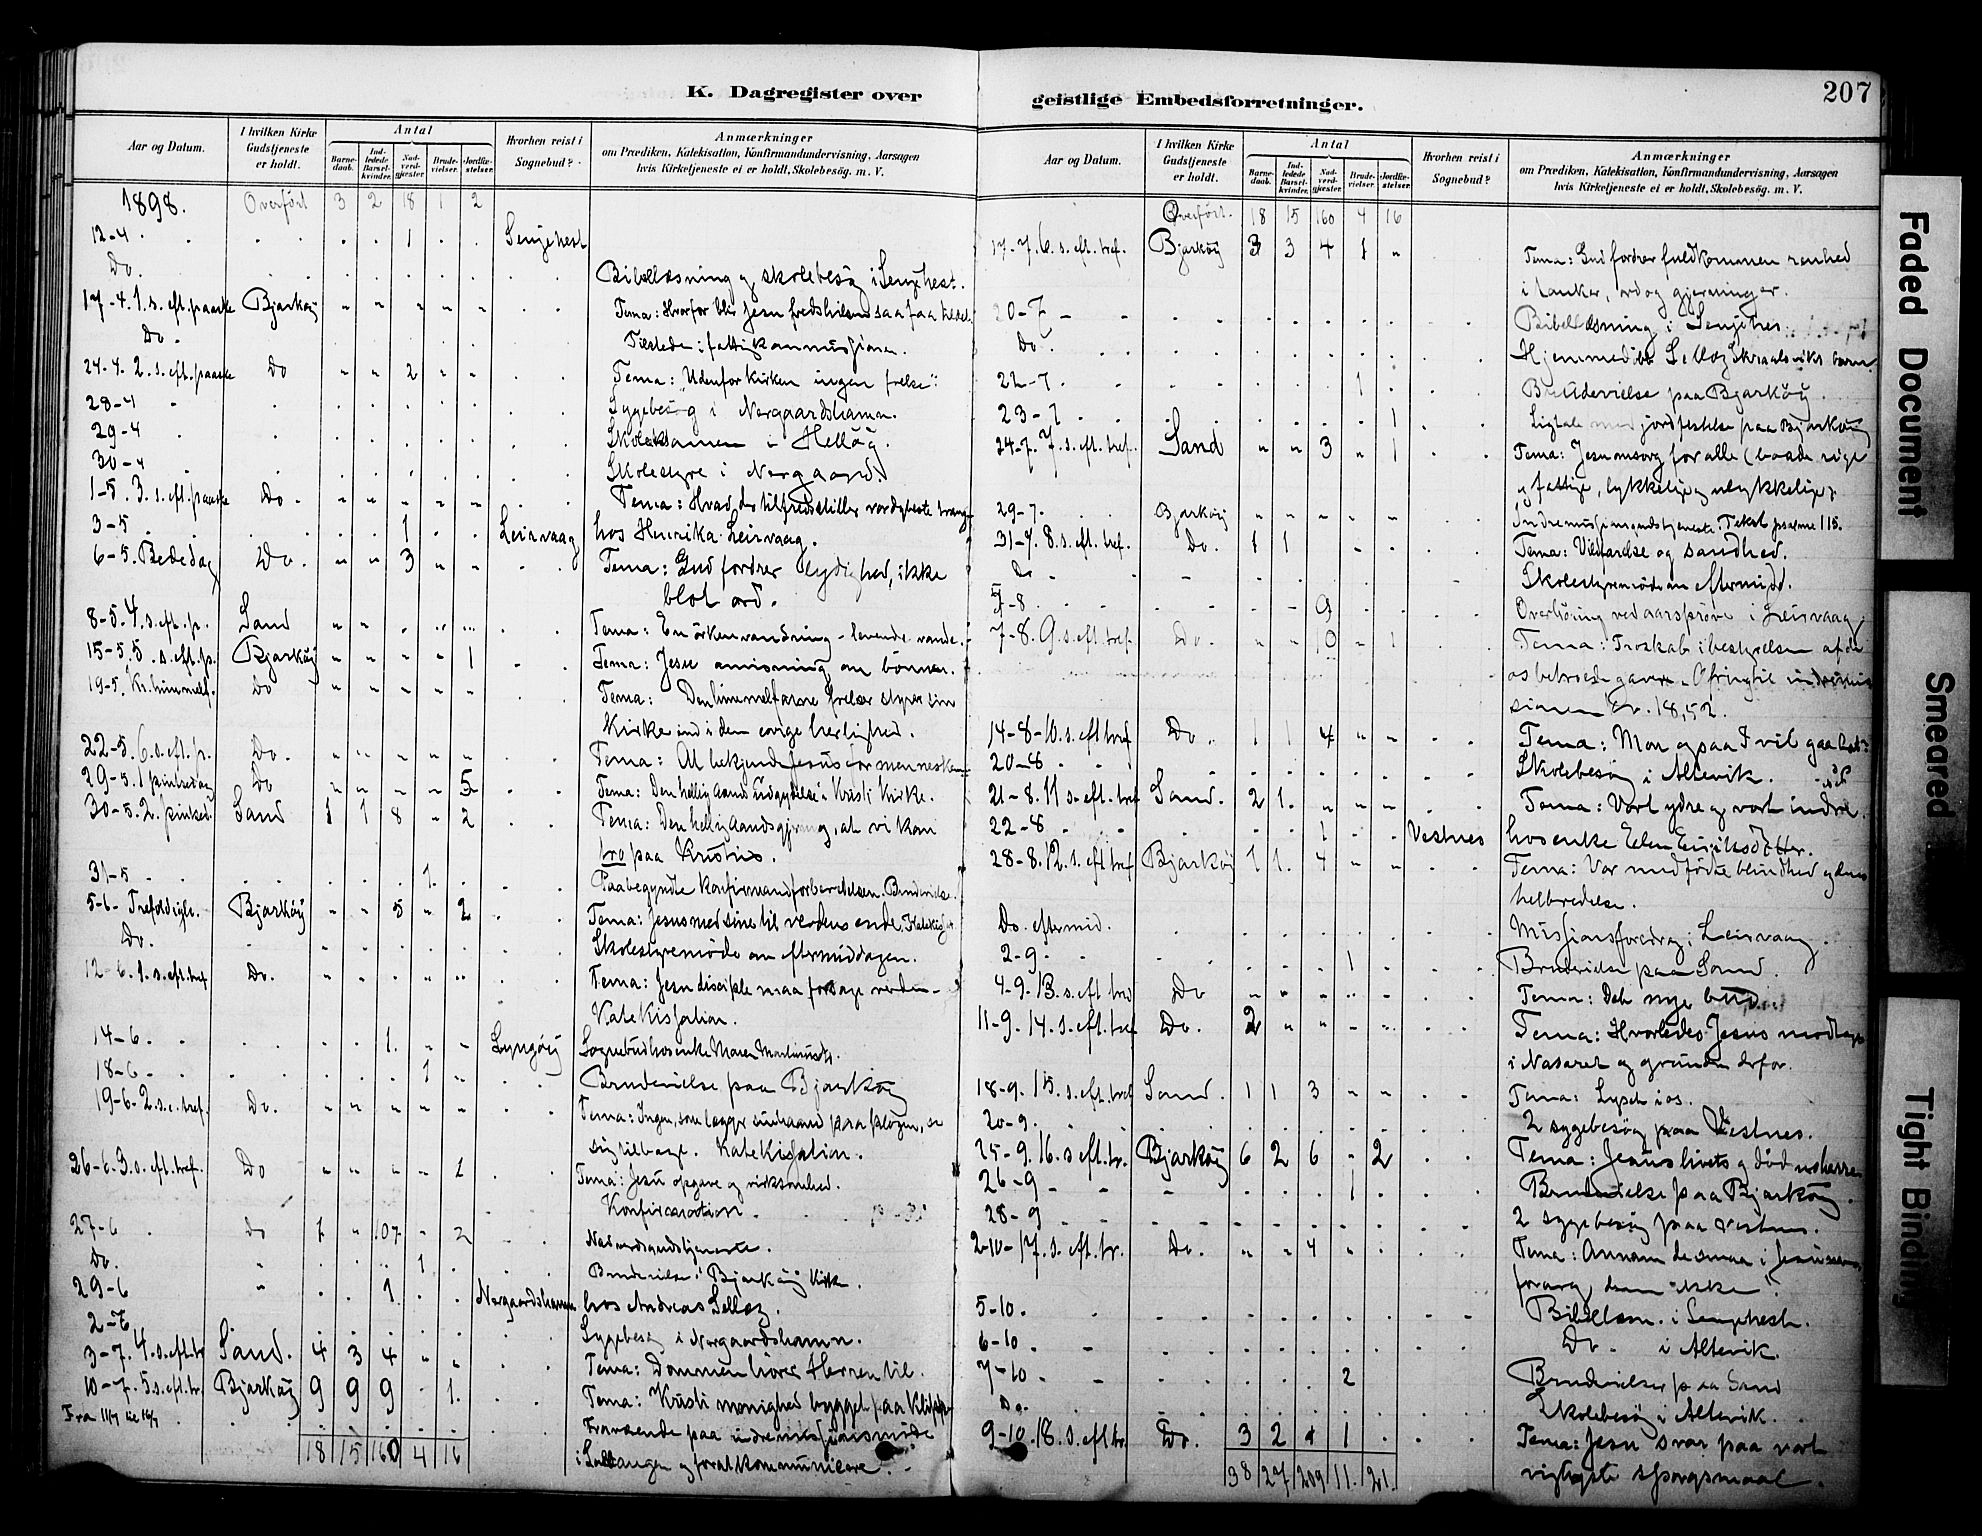 K. Dagregister over
Aar og Datum. I hvilken Kirke Gudstjeneste er holdt. Antal Barnedaab. Indledede Barselkvinder. Nadverdgjester. Brudevielser. Jordfæstelser. Hvorhen reist i Sognebud? Anmærkninger om Prædiken, Katekisation, Konfirmandundervisning, Aarsagen hvis Kirketjeneste ei er holdt, Skolebesög. m. V.
1898. Overført 3 2 18 1 2
12-4. 1 Senjehest
Do. Bibellæsning og skolebesøg i Senjehest.
17-4. 1. s. eft. paaske Bjarköy Tema: Hvorfor blir Jesu fredshilsen saa
Do. Tilstede i fattigkommissionen.
24-4. 2. s. eft. paaske Do 2 Tema: "Udenfor kirken ingen frelse".
28-4 Sygebesøg i Nergaardshamn.
29-4 Skoleksamen i Helløy.
30-4 Skolestyre i Nergaard.
1-5. 3. s. eft. paaske Do. Tema: Hvad der tilfredsstiller vor dybeste trang
3-5 1 Leirvaag hos Henrika Leirvaag.
6-5. Bededag Do. 3 Tema: Gud fordrer lydighed, ikke
blot ord.
8-5. 4. s. eft. p. Sand Tema: En ørkenvandring - levende vande.
15-5. 5. s. eft. p. Bjarköy 1 Tema: Jesu anvisning om bønnen.
19-5. Kr. himmelf. Do Tema: Den himmelfarne frelser styrer sin
kirke ind i den evige herlighed.
22-5. 6. s. eft. p. Do. Tema: At bekjende Jesus for menneskene
29-5. 1 pinsedag Do 5 Tema: Den hellig aands udgydelse i Kristi kirke.
30-5. 2. pinsed. Sand 1 1 8 2 Tema: Den hellig aands gjerning, at vi kan
tro paa Kristus.
31-5 1. Paabegyndte konfirmandforberedelsen. Brudevielse.
5-6. Trefoldigh. Bjarköy 5 2 Tema: Jesus med sine til verdens ende.
Do. Skolestyremøde om eftermiddagen.
12-6. 1. s. eft. tref Do. Tema: Jesu disciple maa forsage verden -
Katekisation.
14-6. 1. Lyngöy Sognebud hos enke Maren
18-6 1 Brudevielse paa Bjarköy
19-6. 2. s. e. tref. Do. Tema: Ingen, som lægger sin haand paa plogen, se
sig tilbage. Katekisation.
26-6. 3. s. eft. tref. Do 1 Tema: Jesu opgave og virksomhed.
Konfirmation.
27-6 Do 1 107 2 Nadverdgudstjeneste.
Do. 1 Brudevielse i Bjarköy kirke.
29-6 1. Nergaardshamn hos Andreas Selløg.
2-7 Sygebesøg i Nergaardshamn.
3-7. 4. s. eft. tr Sand. 4 3 4 Tema: Dommen hører Herren til.
10-7. 5. s. eft. tr. Bjarköy 9 9 9 1. Tema: Kristi menighed bygget paa klippe
Fra 11/7 til 16/7 Fraværende paa indremissionsmøde
18 15 160 4 16 i Sal angen og for at kommunicere.
geistlige Embedsforretninger. 207
Aar og Datum. I hvilken Kirke Gudstjeneste er holdt. Antal Barnedaab. Indledede Barselkvinder. Nadverdgjester. Brudevielser. Jordfæstelser. Hvorhen reist i Sognebud? Anmærkninger om Prædiken, Katekisation, Konfirmandundervisning, Aarsagen hvis Kirketjeneste ei er holdt, Skolebesög. m. V.
Overført. 18 15 160 4 16
17-7. 6. s. eft. tref. Bjarköy 3 3 4 1 Tema: Gud fordrer fuldkommen renhed
i tanker, ord og gjerninger.
20-7 Bibellæsning i Senjehest
Do. Hjemmedøbt barn
22-7 1 Brudevielse paa Bjarköy.
23-7 1 Ligtale med jordfæstelse paa Bjarköy
24-7. 7. s. eft. tref. Sand 3 1 Tema: Jesu omsorg for alle (baade rige
og fattige, lykkelige og ulykkelige).
29-7. Bjarköy Indremissionsgudstjeneste. Tekst psalme 115.
31-7. 8. s. eft. tref. Do. 1 1 Tema: Vildfarelse og sandhed.
Do Skolestyremøde om eftermidd.
5-8 9 Overhøring ved aarsprøve i Leirvaag
7-8. 9. s. eft. tref. Do. 10 1 Tema: Troskab i bestyrelsen af de
os betroede gaver. Ofring til indremis
sionen Kr. 18,52.
14-8-10. s. eft tref Do. 1 1 4 Tema: Mon ogsaa I vil gaa bort?
20-8 Skolebesøg i Altevik.
21-8. 11 s. eft. tref Sand. 2 1. Tema: Vort ydre og vort indre.
22-8 1 Vestnes hos enke Elen Eriksdotter.
28-8. 12. s. eft tref Bjarköy 1 1. 4 Tema: Vor medfødte blindhed og dens
helbredelse.
Do. eftermid. Missionsforedrag i Leirvaag.
2-9 1 Brudevielse paa Sand.
4-9. 13. s. eft. tref Do Tema: Det nye bud.
11-9. 14. s. eft. tref Do. 2 Tema: Hvorledes Jesus modtages
i Nasaret og grunden derfor.
18-9. 15. s. eft. tref Sand. 1 1 3 Tema: Lyset i os.
20-9. 2 sygebesøg paa Vestnes.
25-9. 16. s eft. tr. Bjarköy 6 2 6 2 Tema: Jesus livets og dødens herre
26-9 1 Brudevielse paa Bjarköy.
28-9 2 sygebesøg paa Vestnes.
2-10-17. s. eft. tr. Do. 4 Tema: Annam de smaa i Jesu navn,
forarg dem ikke".
5-10. Bibellæsn. i Senjehest.
6-10 Do. i Altevik.
7-10 2 Brudevielser paa Sand
Do. Skolebesøg i Altevik.
9-10. 18. s. eft tr. Do. 3 2 4 1 Tema: Jesu svar paa vort
38 27 209 11. 21. vigtigste spørgsmaal.
Faded Document
Smeared
Tight Binding